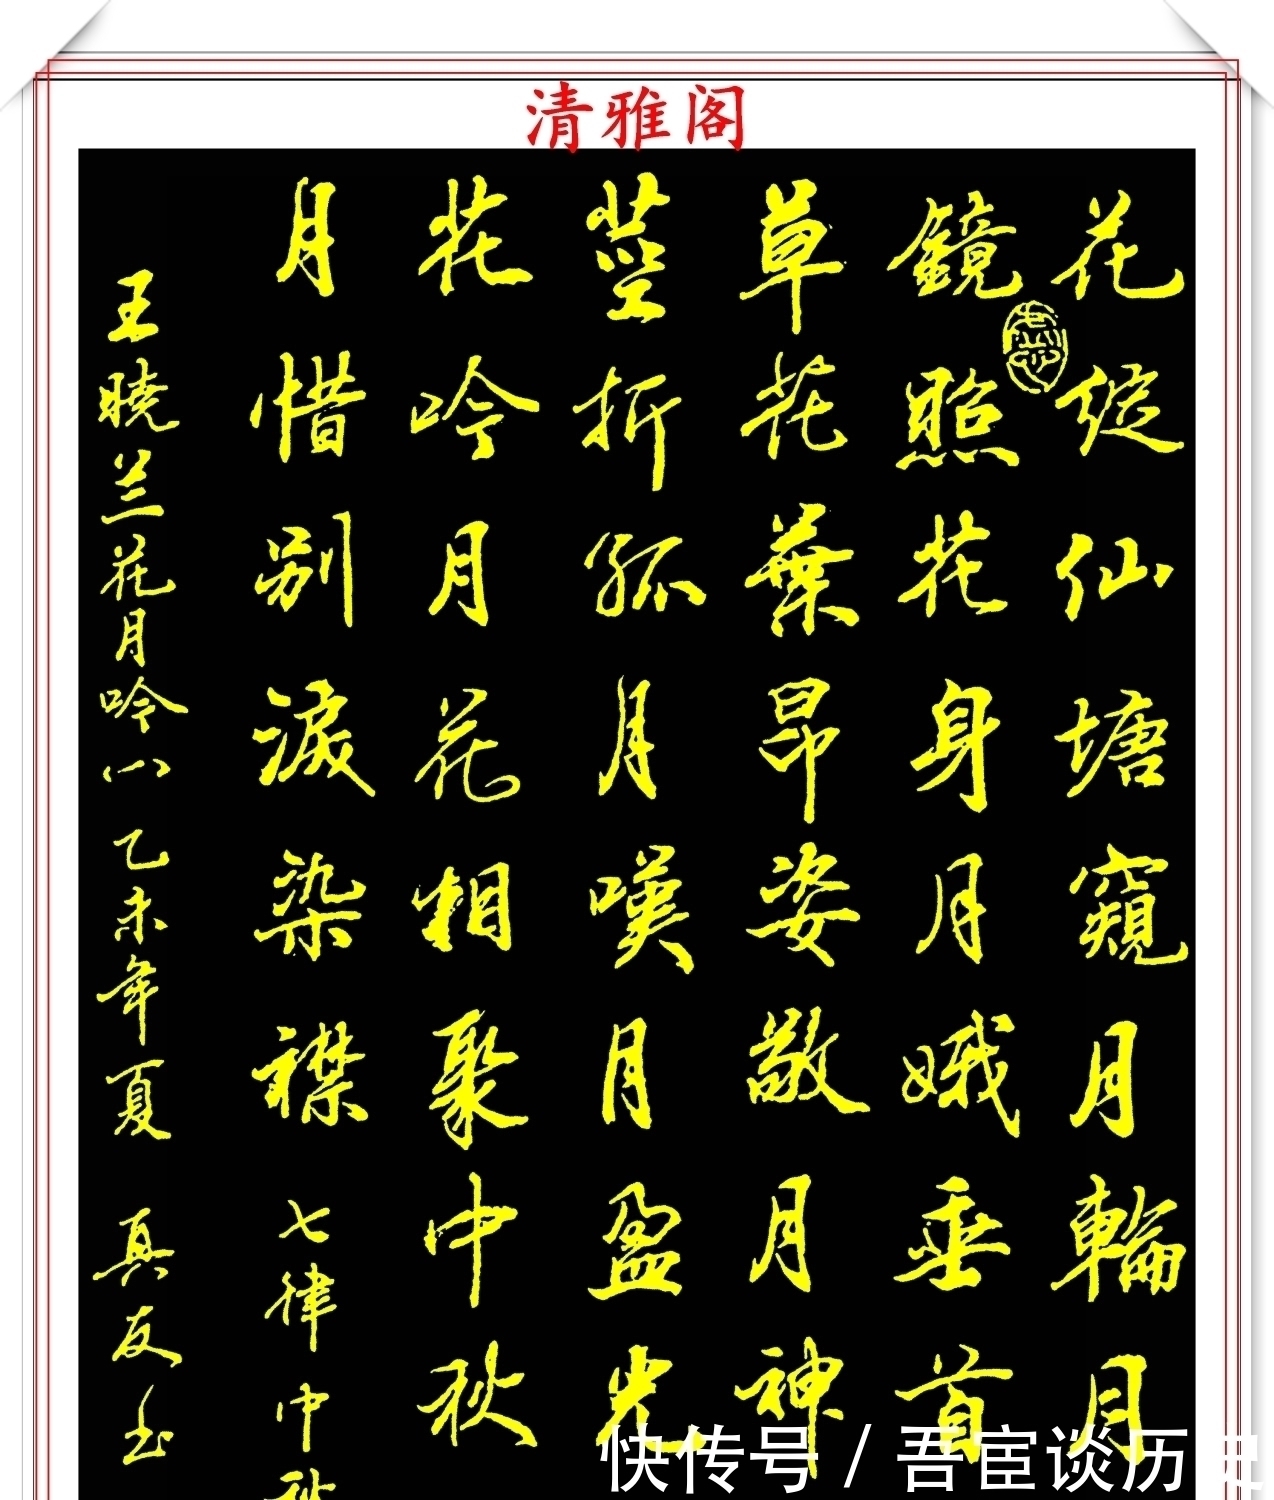 清雅阁
花綻仙塘窺月輪月
鏡照花身月娥垂首
草花葉昂姿敬月神
莖折孤月嘆月盈光
花吟月花相聚中秋
月惜别淚染襟 七律中秋
王曉兰花月吟八 乙未年夏 真友书
快传号 / 吾宦谈历史